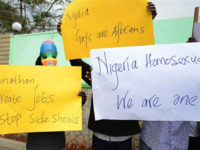 Nigeria
Gays are Africans
Jonathan,
create jobs
Stop Side Shows
Nigeria Homosexua
We are one